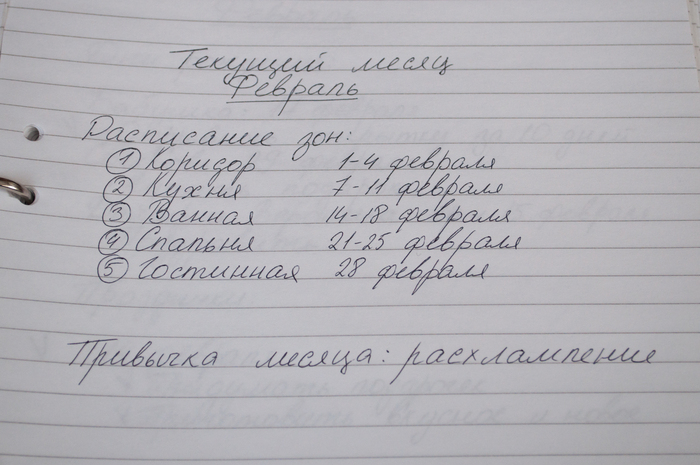 Текущий месяц
Февраль
Расписание зон:
① Коридор 1-4 февраля
② Кухня 7-11 февраля
③ Ванная 14-18 февраля
④ Спальня 21-25 февраля
⑤ Гостинная 28 февраля
Привычка месяца: расхламление